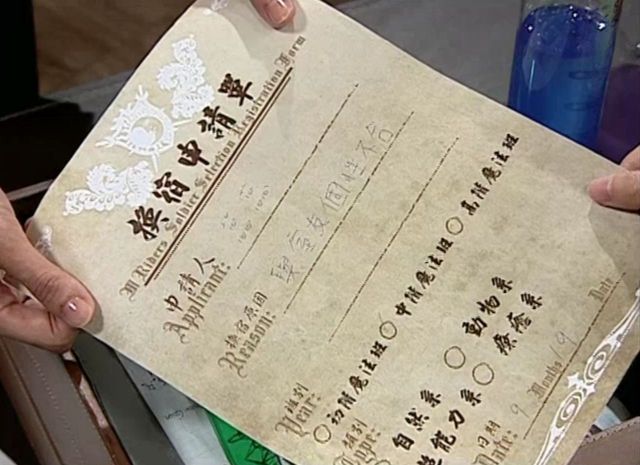 換宿申請單
M Riders Soldier Selection Registration Form
申請人
Applicant:
換宿原因 與室友個性不合
Reason:
班別 初階魔法班 中階魔法班 高階魔法班
Year:
類別 自然系 動物系
Type: 超能力系 療癒系
日期
Date: 9 Months / 9 Date